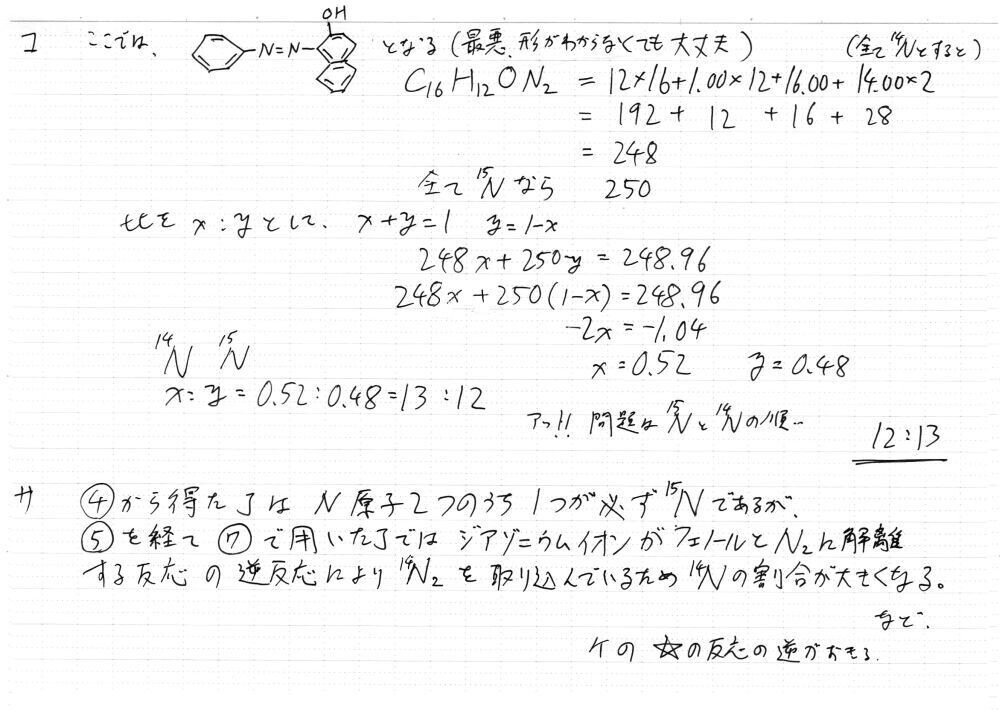 コ ここでは、 OH -N=N- となる(最悪、形がわからなくても大丈夫) (全て¹⁴Nとすると)
C₁₆H₁₂ON₂ = 12×16+1.00×12+16.00+14.00×2
= 192 + 12 + 16 + 28
= 248
全て ¹⁵N なら 250
比を x:yとして、 x+y=1 y=1-x
248x+250y=248.96
248x+250(1-x)=248.96
-2x=-1.04
x=0.52 y=0.48
¹⁴N ¹⁵N
x:y=0.52:0.48=13:12
アっ!! 問題は ¹⁵Nと¹⁴Nの順…
12:13
サ ④から得た了は N原子2つのうち1つが必ず¹⁵Nであるが、
⑤を経て⑦で用いた了ではジアゾニウムイオンがフェノールとN₂に解離
する反応の逆反応により¹⁴N₂を取り込んでいるため¹⁴Nの割合が大きくなる。
など、
ケの☆の反応の逆がおきる.